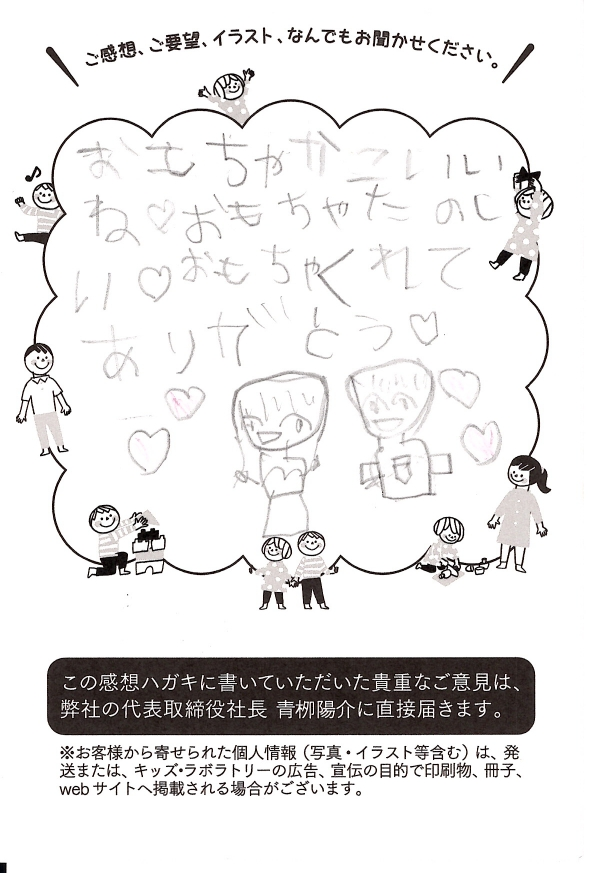 ご感想、ご要望、イラスト、なんでもお聞かせください。
おもちゃかこいい
ね♡おもちゃたのし
い♡おもちゃくれて
ありがとう♡
この感想ハガキに書いていただいた貴重なご意見は、
弊社の代表取締役社長 青栁陽介に直接届きます。
※お客様から寄せられた個人情報(写真・イラスト等含む)は、発
送または、キッズ・ラボラトリーの広告、宣伝の目的で印刷物、冊子、
webサイトへ掲載される場合がございます。